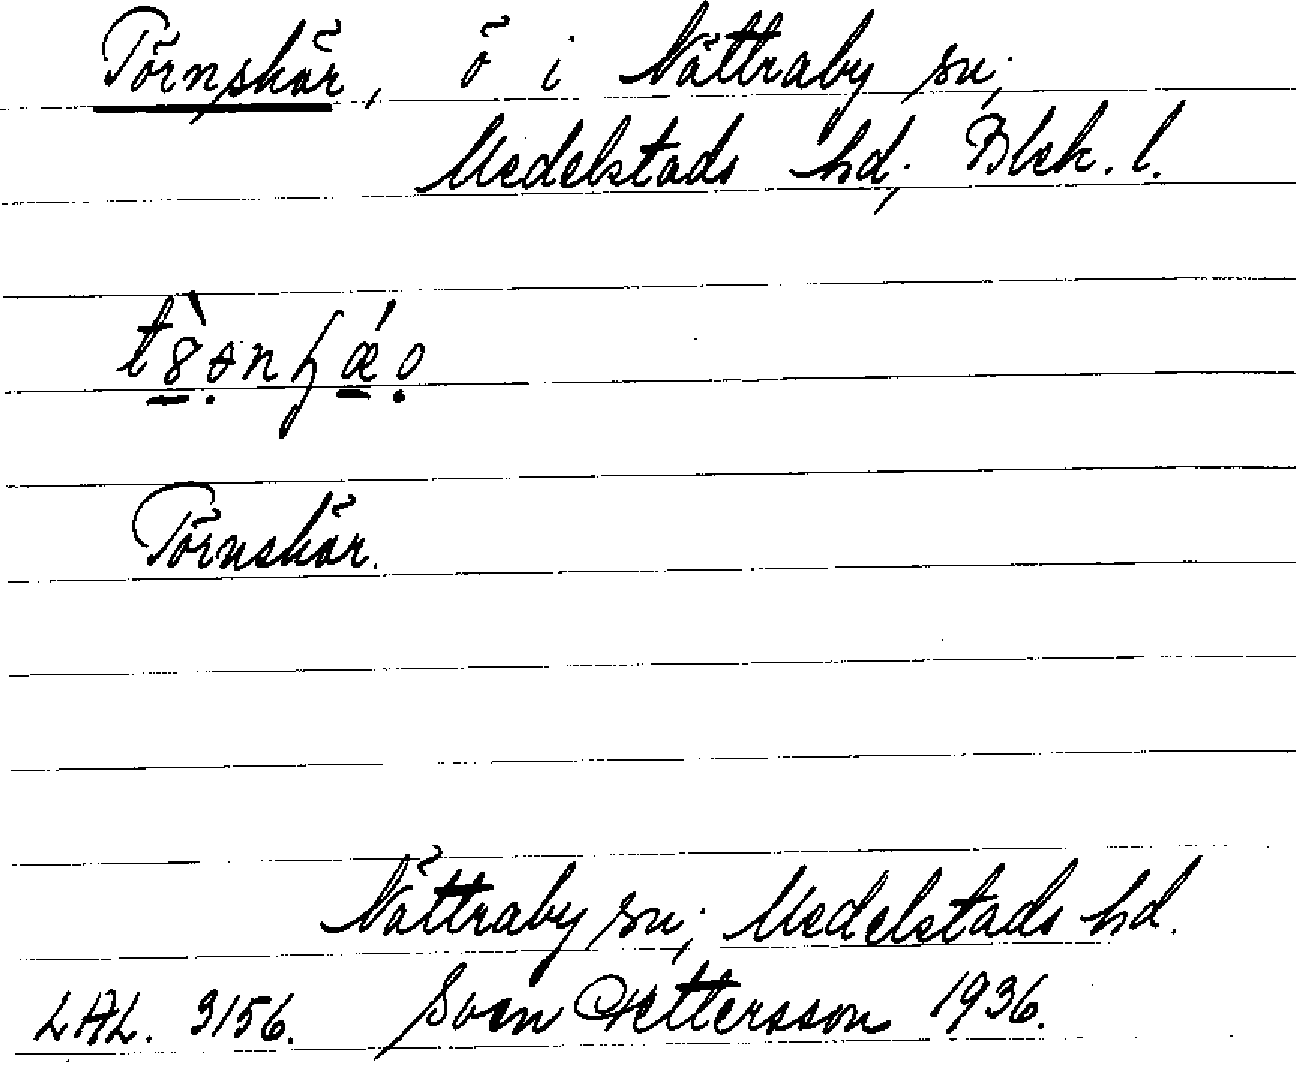 Törnskär, ö i Nättraby sn;
Medelstads hd; Blek. l.
Törnskär.
Nättraby sn; Medelstads hd.
LAL. 3156. Sven Pettersson 1936.